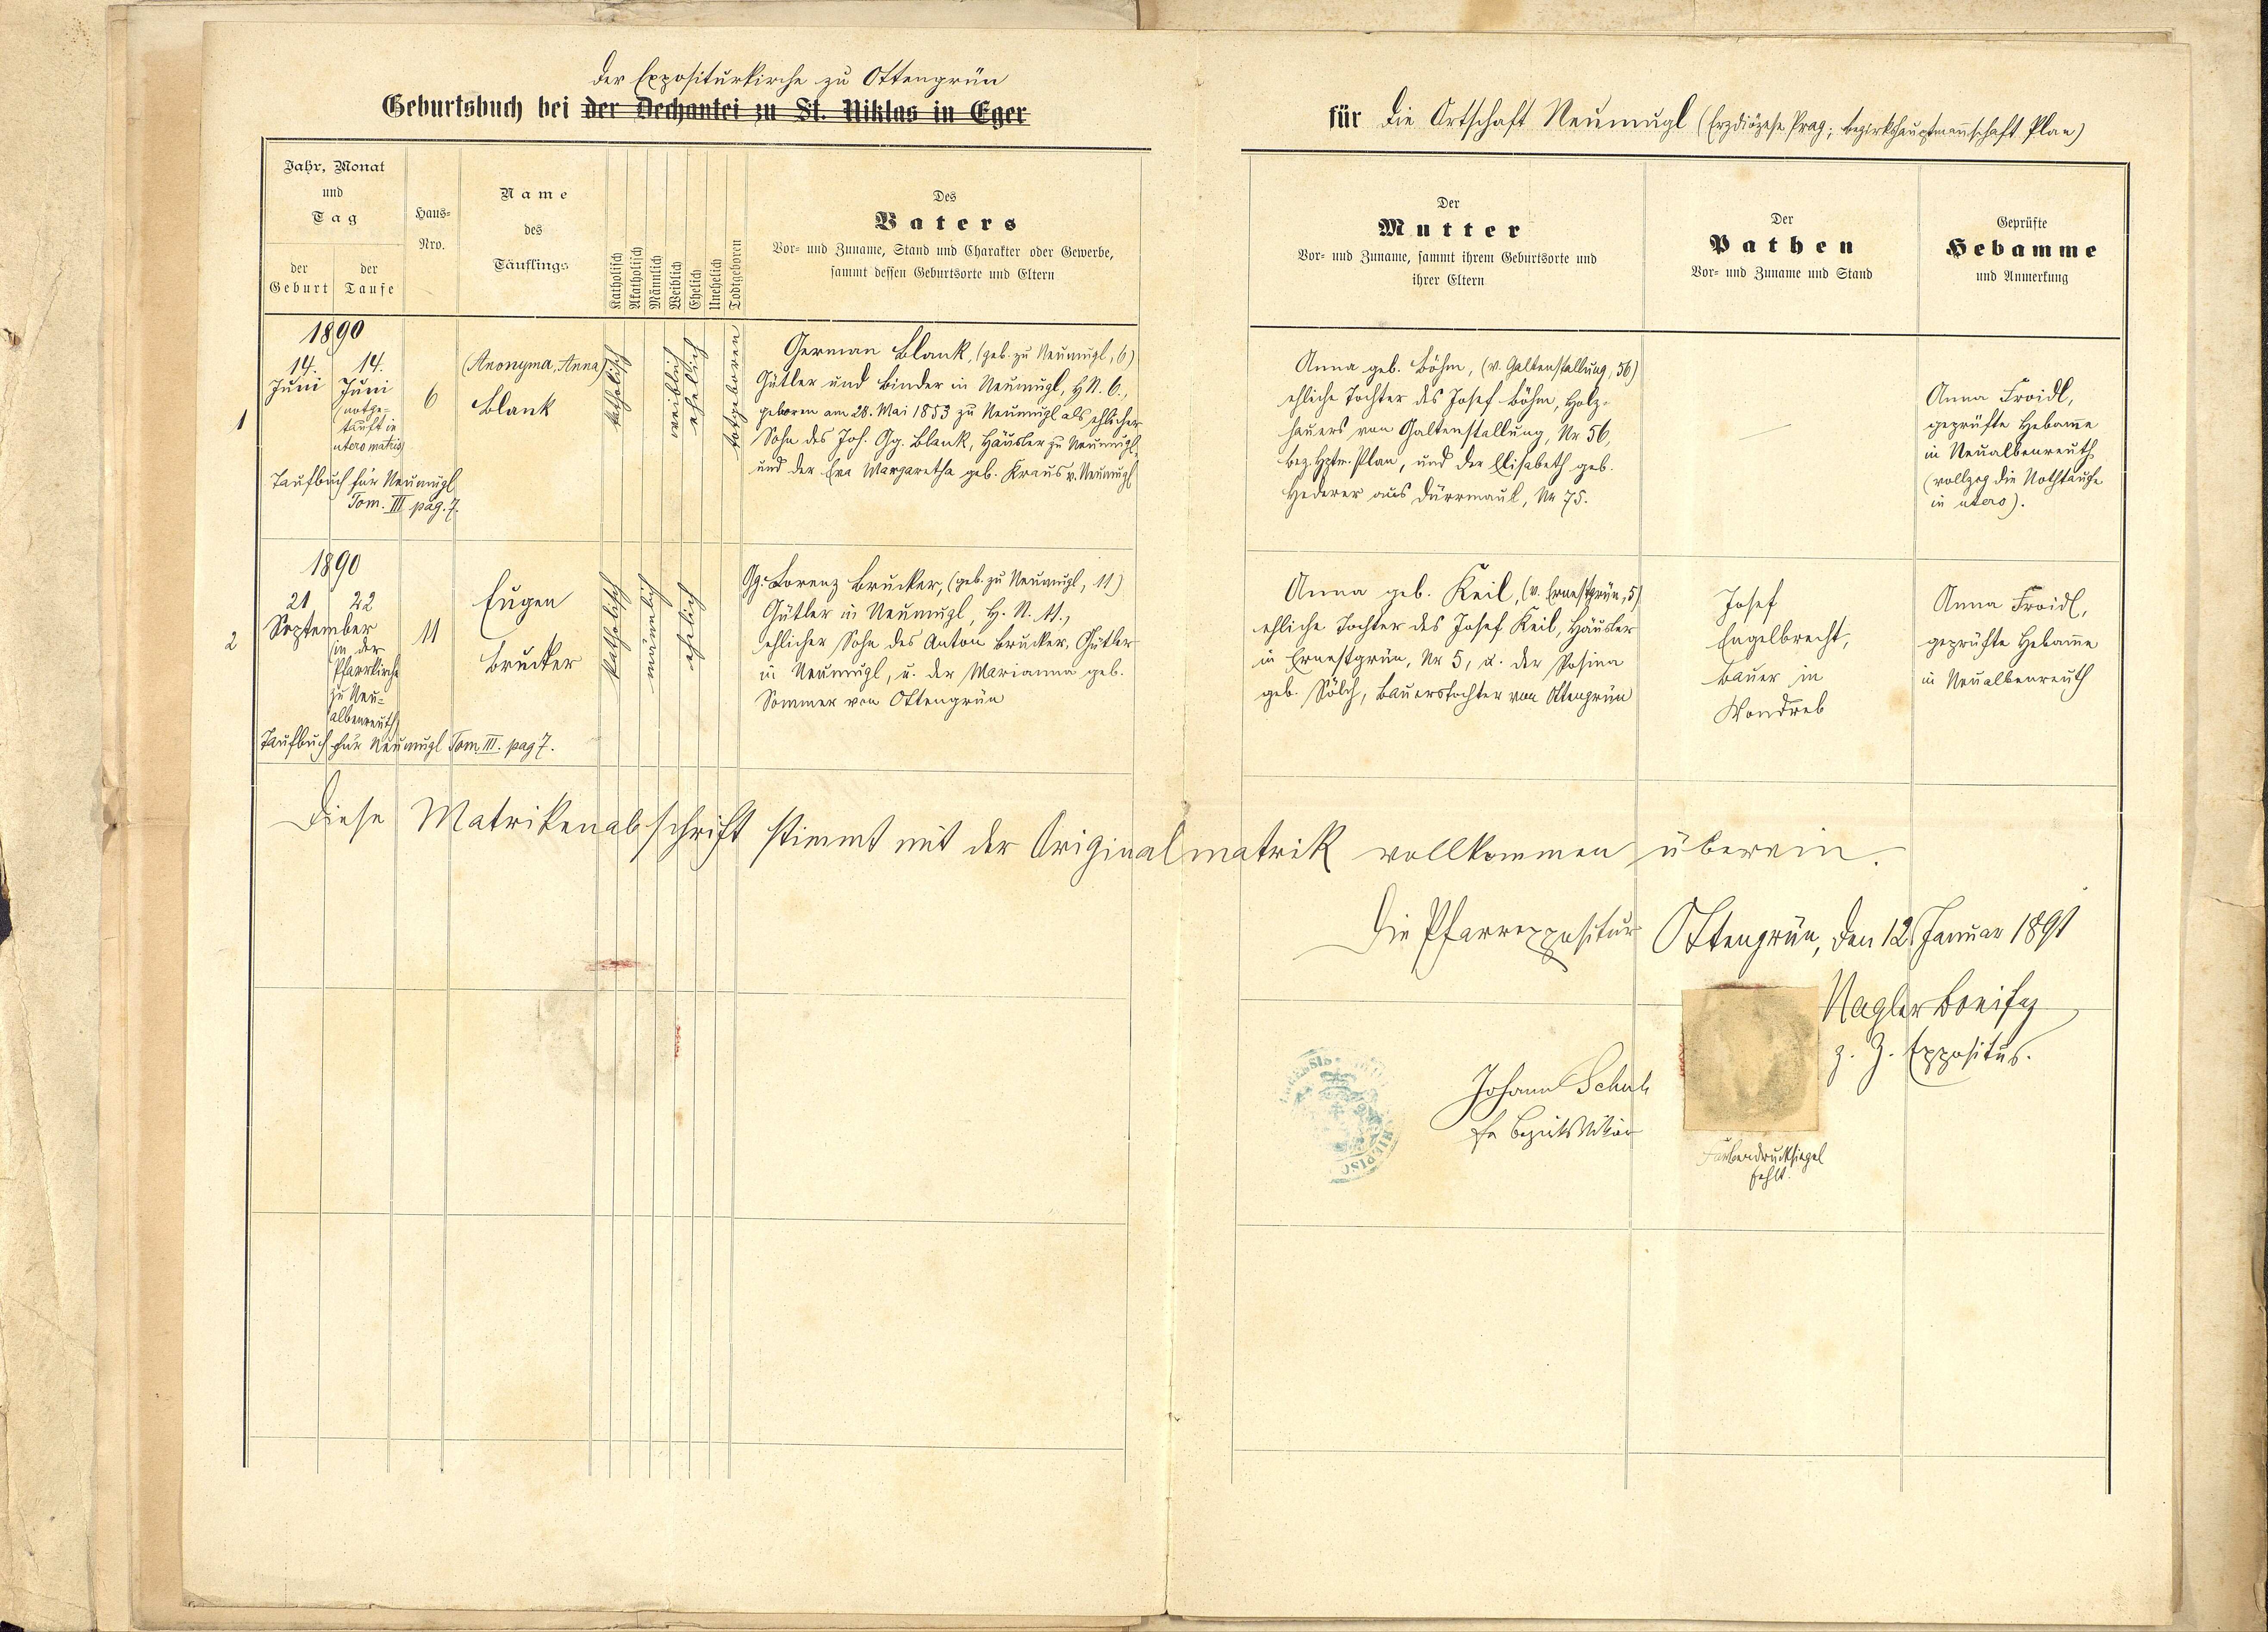 der Expositurkirche zu Ottengrün
Geburtsbuch bei der Dechantei zu St. Niklas in Eger
Jahr, Monat
und
Tag
der
Geburt
der
Taufe
Haus-
Nro.
Name
des
Täuflings
Katholisch
Akatholisch
Männlich
Weiblich
Ehelich
Unehelich
Todtgeboren
Des
Vaters
Vor- und Zuname, Stand und Charakter oder Gewerbe,
sammt dessen Geburtsorte und Eltern
1
1890
14.
Juni
14.
Juni
(notge-
tauft in
utero matris)
Taufbuch für Neumugl
Tom. III pag. 7.
6
(Anonyma, Anna)
Blank
katholisch
weiblich
ehelich
totgeboren
German Blank, (geb. zu Neumugl, 6)
Gütler und Binder in Neumugl, H.N. 6.,
geboren am 28. Mai 1853 zu Neumugl als ehlicher
Sohn des Joh. Gg. Blank, Häusler zu Neumugl,
und der Eva Margaretha geb. Kraus v. Neumugl
2
1890
21
22
September
(in der
Pfarrkirche
zu Neu-
albenreuth)
Taufbuch für Neumugl Tom. III. pag 7.
11
Eugen
Brucker
katholisch
männlich
ehelich
Gg. Lorenz Brucker, (geb. zu Neumugl, 11)
Gütler in Neumugl, H. N. 11.,
ehlicher Sohn des Anton Brucker, Gütler
in Neumugl, u. der Marianna geb.
Sommer von Ottengrün
für die Ortschaft Neumugl (Erzdiözese Prag; Bezirkshauptmannschaft Plan)
Der
Mutter
Vor- und Zuname, sammt ihrem Geburtsorte und
ihrer Eltern
Der
Pathen
Vor- und Zuname und Stand
Geprüfte
Hebamme
und Anmerkung
Anna geb. Böhm, (v. Galtenstallung, 56)
ehliche Tochter des Josef Böhm, Holz-
hauers von Galtenstallung, Nr 56,
bez. Hptm. Plan, und der Elisabeth geb.
Hederer aus Dürrmaul, Nr 75.
Anna Froidl,
geprüfte Hebam̄e
in Neualbenreuth
(vollzog die Nothtaufe
in utero).
Anna geb. Keil, (v. Ernestgrün, 5)
ehliche Tochter des Josef Keil, Häusler
in Ernestgrün, Nr 5, u. der Rosina
geb. Sölch, Bauerstochter von Ottengrün
Josef
Engelbrecht,
Bauer in
Wondreb
Anna Froidl,
geprüfte Hebam̄e
in Neualbenreuth
Diese Matrikenabschrift stimmt mit der Originalmatrik vollkommen überein.
Die Pfarrexpositur Ottengrün, den 12. Januar 1891
Nagler Bonifaz
z. Z. Expositus.
Johann
Bezirksvikar
Farbendrucksiegel
fehlt.